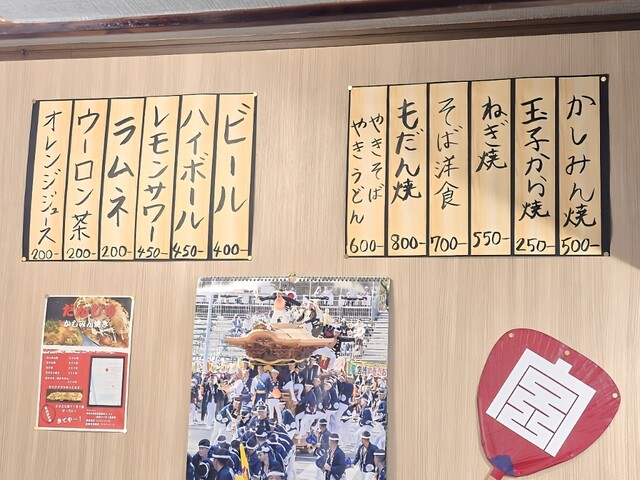 ビール
400-
ハイボール
450-
レモンサワー
450-
ラムネ
200-
ウーロン茶
200-
オレンジジュース
200-
かしみん焼
500-
玉子から焼
250-
ねぎ焼
550-
そば洋食
700-
もだん焼
800-
やきそば
やきうどん
600-
かしみん焼き